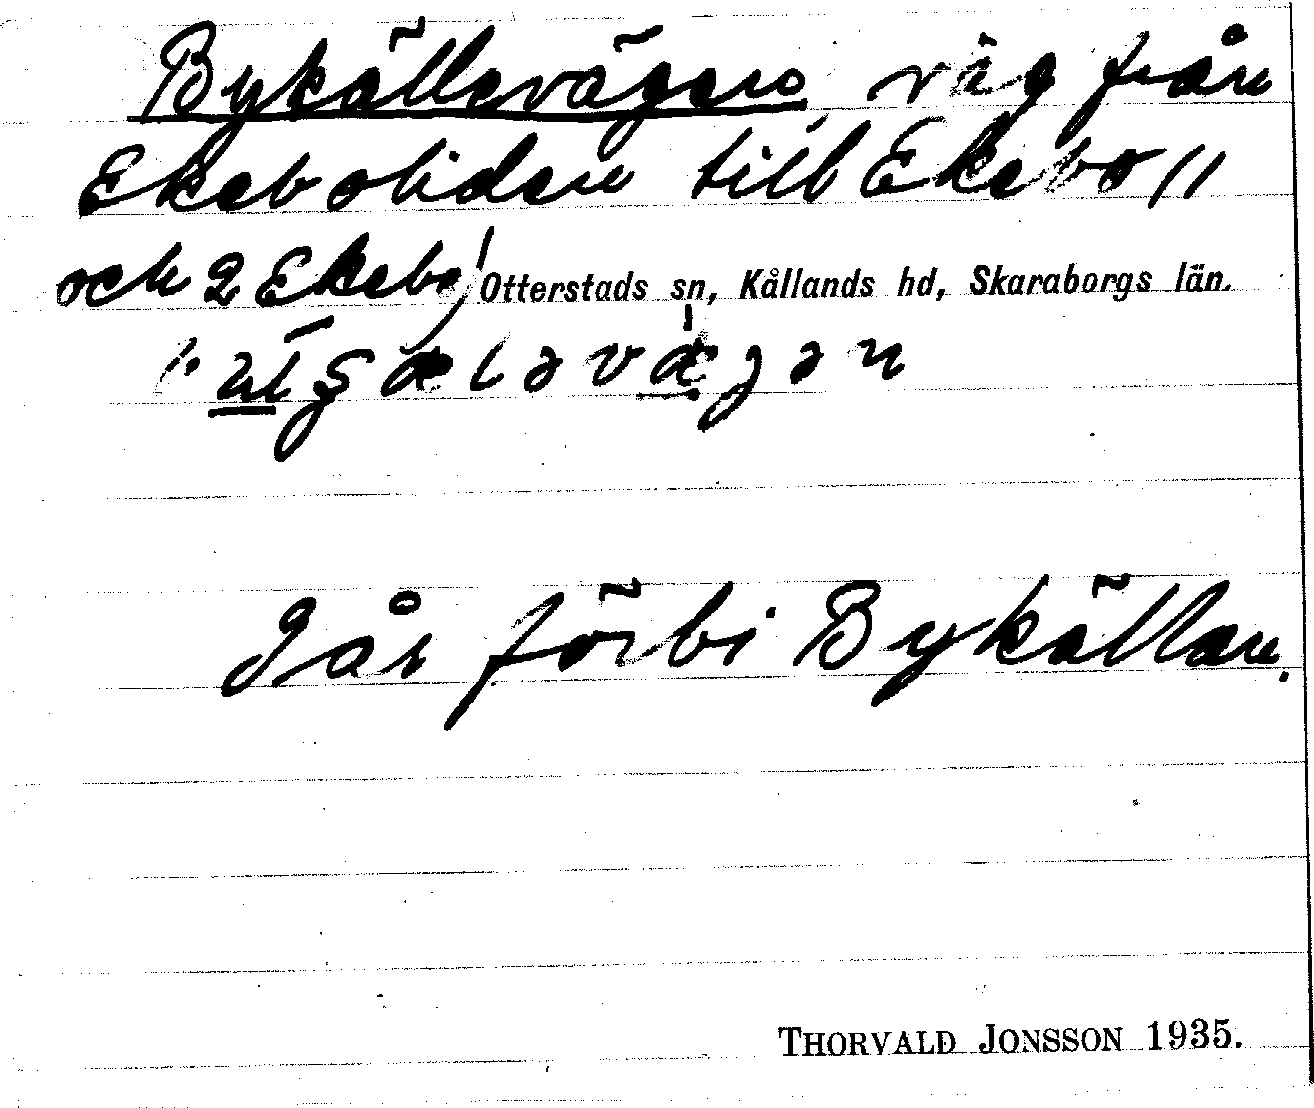 Bykällevägen, väg från
Ekeboliden till Ekebo 11
och 2 Ekebo, Otterstads sn, Kållands hd, Skaraborgs län.
Går förbi Bykällan.
THORVALD JONSSON 1935.